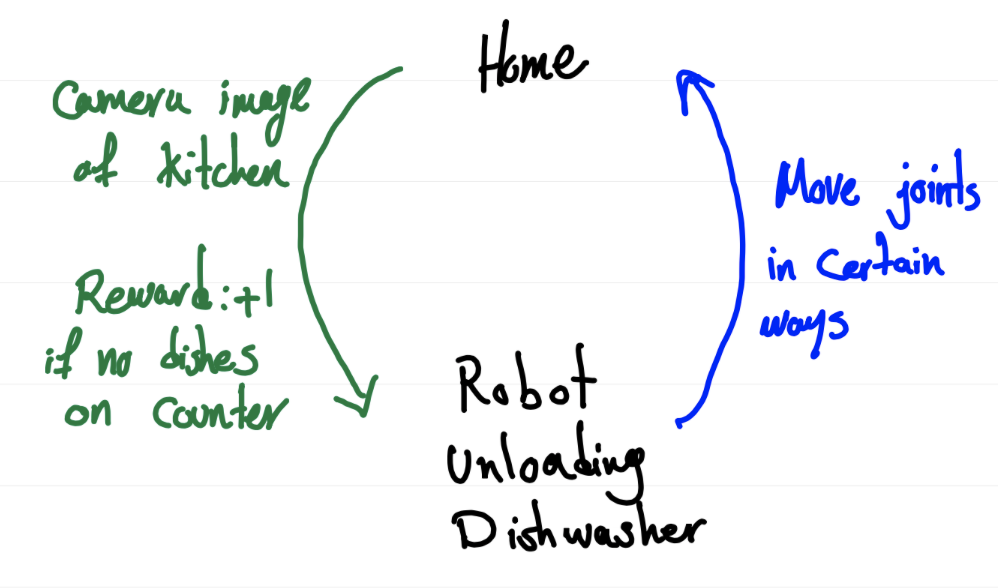 Home
Camera image
of kitchen
Reward: +1
if no dishes
on counter
Move joints
in certain
ways
Robot
Unloading
Dishwasher